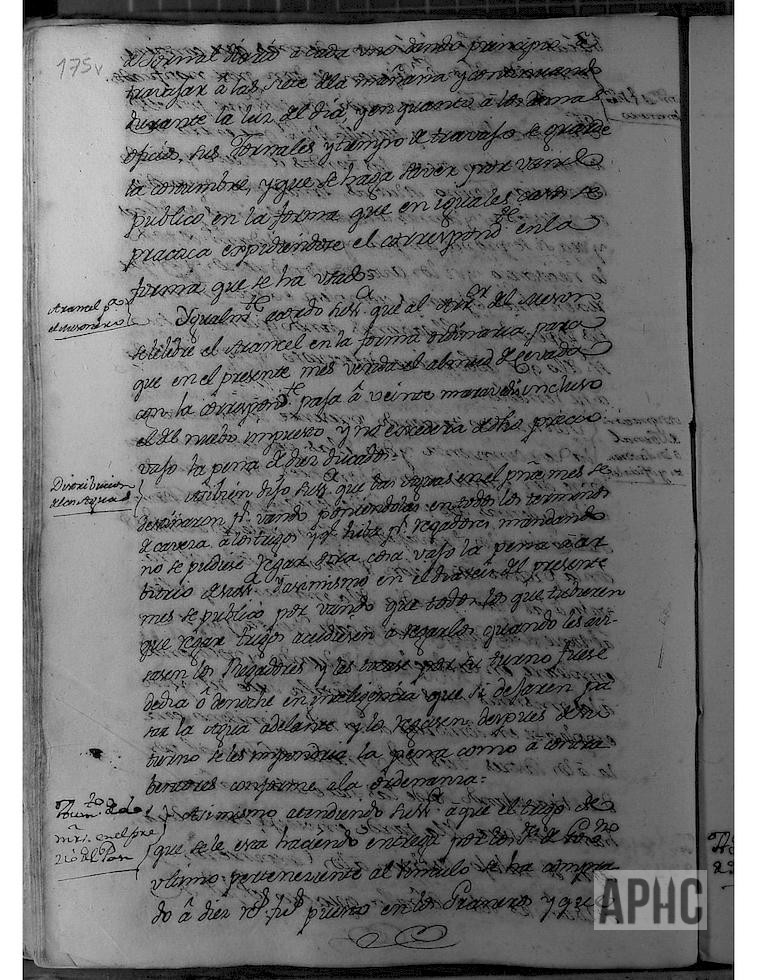 175v
de Jornal diario a cada uno dando principio a
travajar a las siete dela mañana y continuando
durante la luz del dia, y en quanto a los demas
oficios, sus Jornales y tiempo de travajo se guarde
la costumbre, y que se haga saver por vando
publico en la forma que en iguales casos se
practica expidiendose el correspondte en la
forma que se ha usado
Arancel pa
el Mesonero
Igualmte acordo Su Sa que al Arr.or del Meson
se le libre el Arancel en la forma ordinaria para
que en el presente mes venda el almud de Cevada
con la correspondte paja â veinte maravedis incluso
el del nuebo impuesto y no exceda de dho precio
vajo la pena de diez ducados.
Distribucion
de las Aguas
Tambien dijo Su Sa que las aguas en el pnte mes se
destinaron pr vando poniendolas en todos los terminos
de cavera â los trigos y qe hiba pr regadores mandando
no se pudiese regar otra cosa vajo la pena â ar
bitrio de su Sa Y asimismo en el dia seis del presente
mes se publico por vando que todos los que tubieren
que regar trigos acudiesen a regarlos quando les avi-
sasen los Regadores y les tocase por su turno fuese
de dia ô de noche en inteligencia que si dejaren pa
sar la Agua adelante y los regasen despues de su
turno se les impondria la pena como â contra
bentores conforme a la ordenanza:
Aumto de dos
mrs. en el pre
cio del Pan
Asimismo atendiendo Su Sa â que el trigo
que se le esta haciendo entrega por los
ultimo perteneciente al Vinculo se ha compra
do â diez rs fs puesto en los Graneros y que
APHC